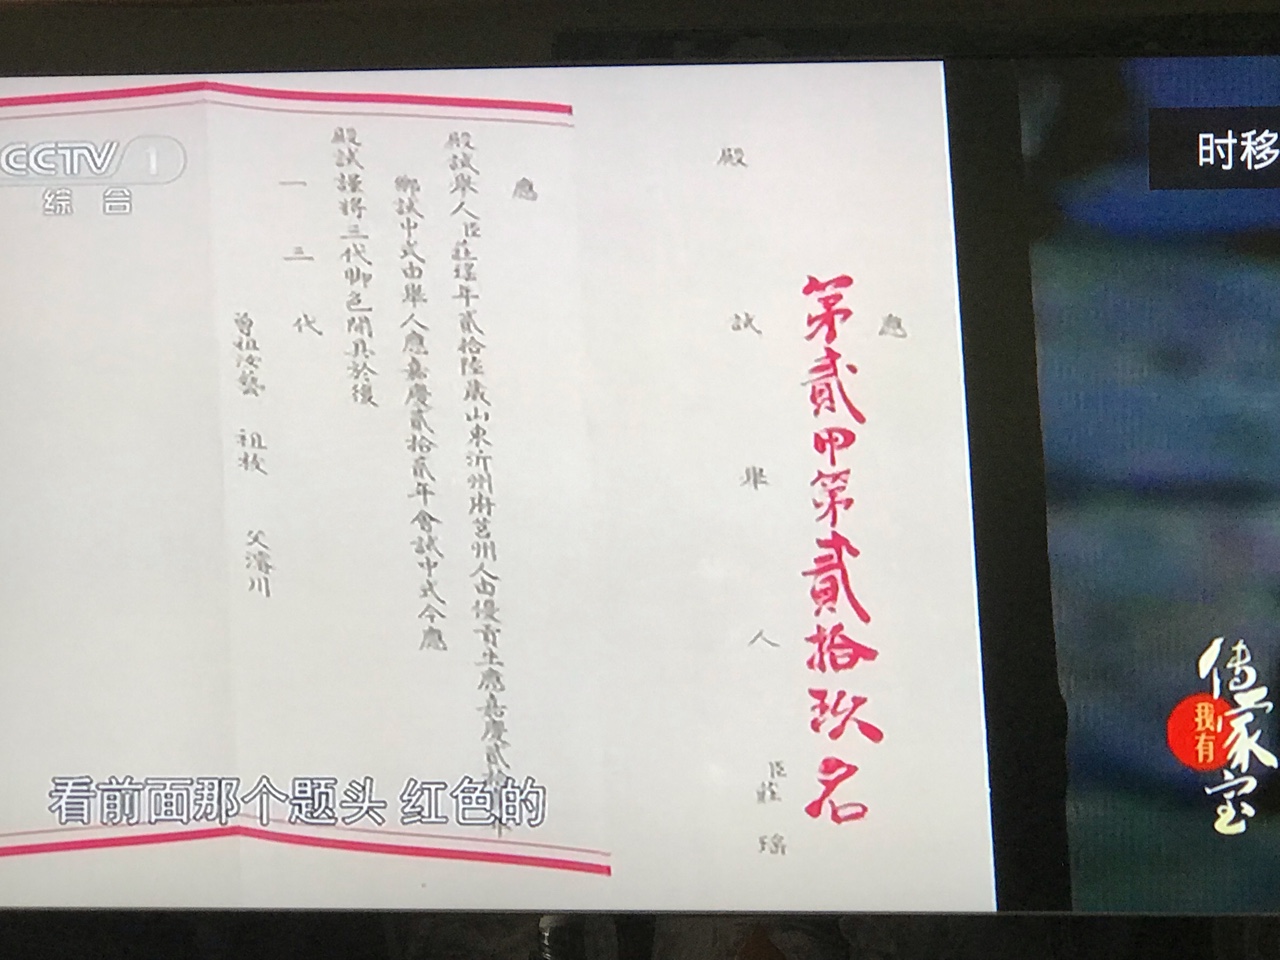 CCTV 1
综合
时移
應
第貳甲第貳拾玖名
殿試舉人臣莊瑶
應
殿試舉人臣莊瑶年貳拾陸歲山東沂州府莒州人由優貢生應嘉慶貳
鄉試中式由舉人應嘉慶貳拾貳年會試中式今應
殿試謹將三代脚色開具於後
一三代
曾祖汝藝 祖枚 父濬川
看前面那个题头 红色的
我有
传家宝